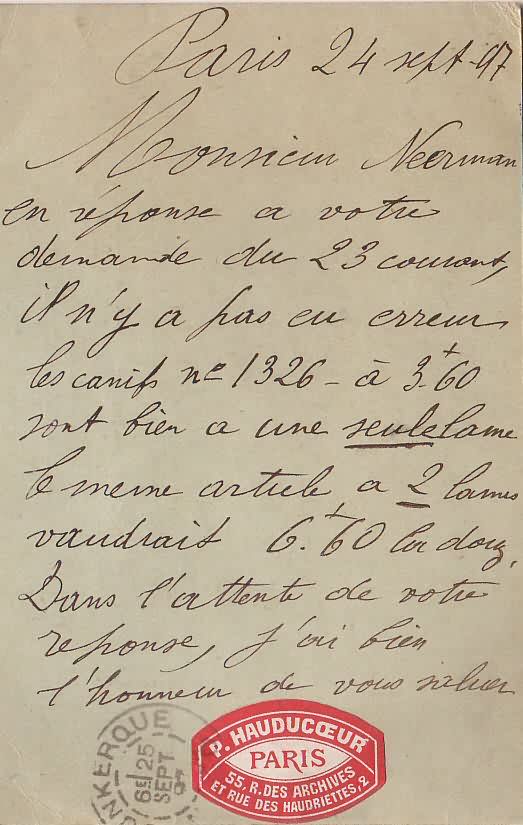 Paris 24 sept. 97
Monsieur Neerman
en réponse a votre
demande du 23 courant,
il n'y a pas eu erreur
les canifs no 1326 - à 3.60
sont bien a une seule lame
le meme article a 2 lames
vaudrait 6.60 la douz.
Dans l'attente de votre
reponse, j'ai bien
l'honneur de vous saluer
P. HAUDUCŒUR
PARIS
55, R. DES ARCHIVES
ET RUE DES HAUDRIETTES, 2
NKERQUE
25
SEPT